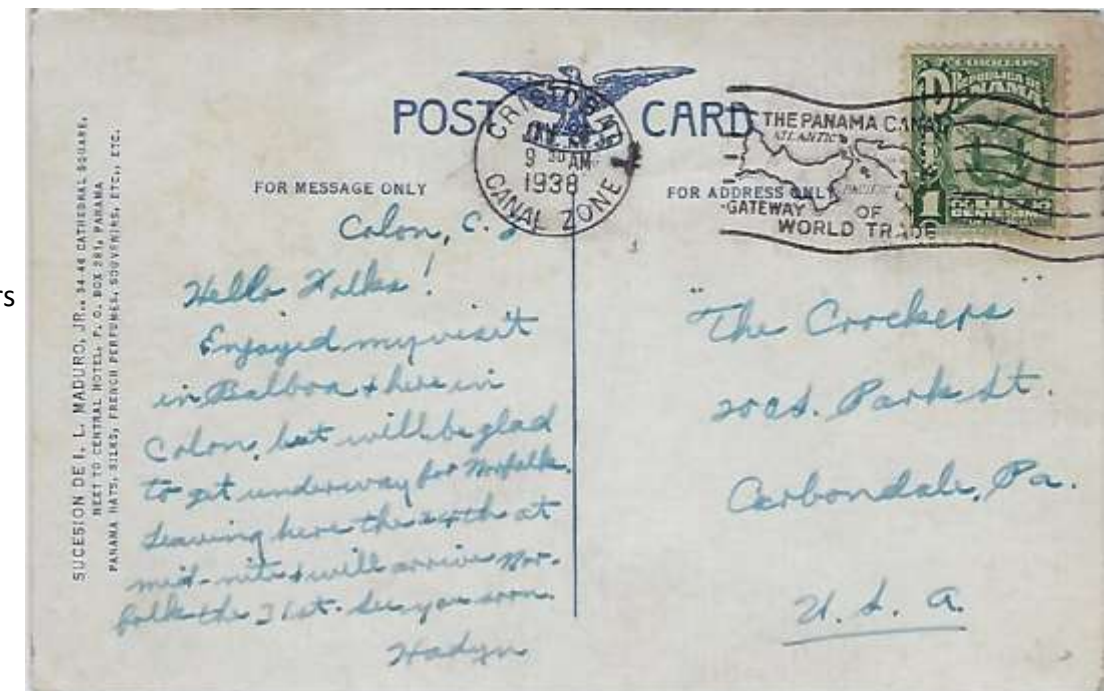 rs
SUCESION DE I. L. MADURO, JR., 34-46 CATHEDRAL SQUARE,
NEXT TO CENTRAL HOTEL, P. O. BOX 281, PANAMA
PANAMA HATS, SILKS, FRENCH PERFUMES, SOUVENIRS, ETC., ETC.
POST CARD
FOR MESSAGE ONLY
FOR ADDRESS ONLY
CRISTOBAL
9 30 AM
1938
CANAL ZONE
THE PANAMA CANAL
ATLANTIC
PACIFIC
GATEWAY OF
WORLD TRADE
CORREOS
REPUBLICA DE
PANAMA
1
Colon, C. Z
Hello Folks!
Enjoyed my visit
in Balboa + here in
Colon, but will be glad
to get underway for Norfolk.
Leaving here the at
mid-nite + will arrive Nor-
folk the 31st. See you soon.
Hadyn
"The Crockers"
Park St.
Carbondale, Pa.
U. S. A.